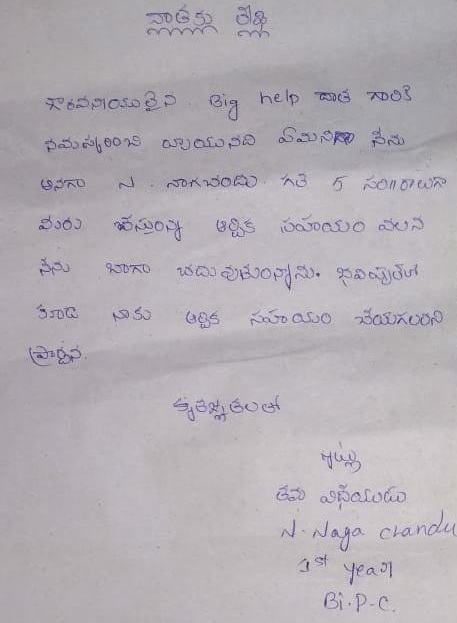 దాతకు లేఖ
గౌరవనీయులైన Big help దాత గారికి
నమస్కరించి వ్రాయునది ఏమనగా నేను
అనగా N. నాగచందు గత 5 సం॥రాలుగా
మీరు చేస్తున్న ఆర్థిక సహాయం వలన
నేను బాగా చదువుతున్నాను. భవిష్యత్ లో
కూడా నాకు ఆర్థిక సహాయం చేయగలరని
ప్రార్థన.
కృతజ్ఞతలతో
ఇట్లు
తమ విధేయుడు
N. Naga chandu
1st year
Bi.P.C.